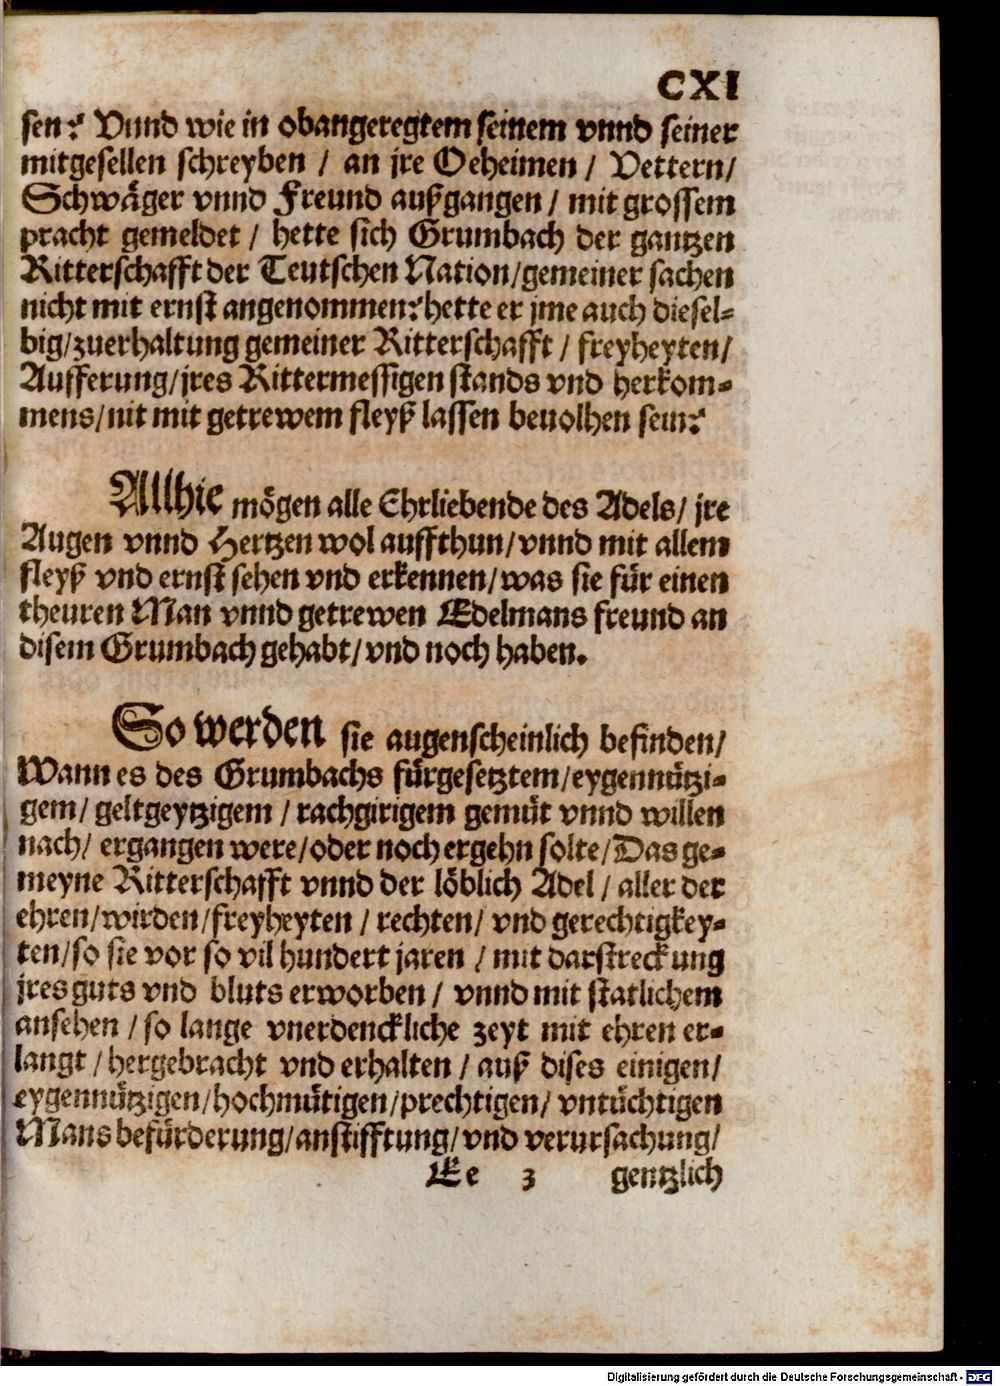 CXI
sen? Vnnd wie in obangeregtem seinem vnnd seiner
mitgesellen schreyben / an jre Oeheimen / Vettern/
Schwäger vnnd Freund außgangen / mit grossem
pracht gemeldet / hette sich Grumbach der gantzen
Ritterschafft der Teutschen Nation/gemeiner sachen
nicht mit ernst angenommen?hette er jme auch diesel-
big/zuerhaltung gemeiner Ritterschafft / freyheyten/
Aufferung/jres Rittermessigen stands vnd herkom-
mens/nit mit getrewem fleyß lassen beuolhen sein?
Allhie mögen alle Ehrliebende des Adels/ jre
Augen vnnd Hertzen wol auffthun/vnnd mit allem
fleyß vnd ernst sehen vnd erkennen/was sie für einen
theuren Man vnnd getrewen Edelmans freund an
disem Grumbach gehabt/vnd noch haben.
So werden sie augenscheinlich befinden/
Wann es des Grumbachs fürgesetztem/eygennützi-
gem/ geltgeytzigem / rachgirigem gemüt vnnd willen
nach/ ergangen were/oder noch ergehn solte/Das ge-
meyne Ritterschafft vnnd der löblich Adel / aller der
ehren/wirden/freyheyten / rechten/ vnd gerechtigkey-
ten/so sie vor so vil hundert jaren / mit darstreckung
jres guts vnd bluts erworben / vnnd mit statlichem
ansehen / so lange vnerdenckliche zeyt mit ehren er-
langt / hergebracht vnd erhalten / auß dises einigen/
eygennützigen/hochmütigen/prechtigen/ vntüchtigen
Mans befürderung/anstifftung/vnd verursachung/
Ee 3 gentzlich
Digitalisierung gefördert durch die Deutsche Forschungsgemeinschaft - DFG